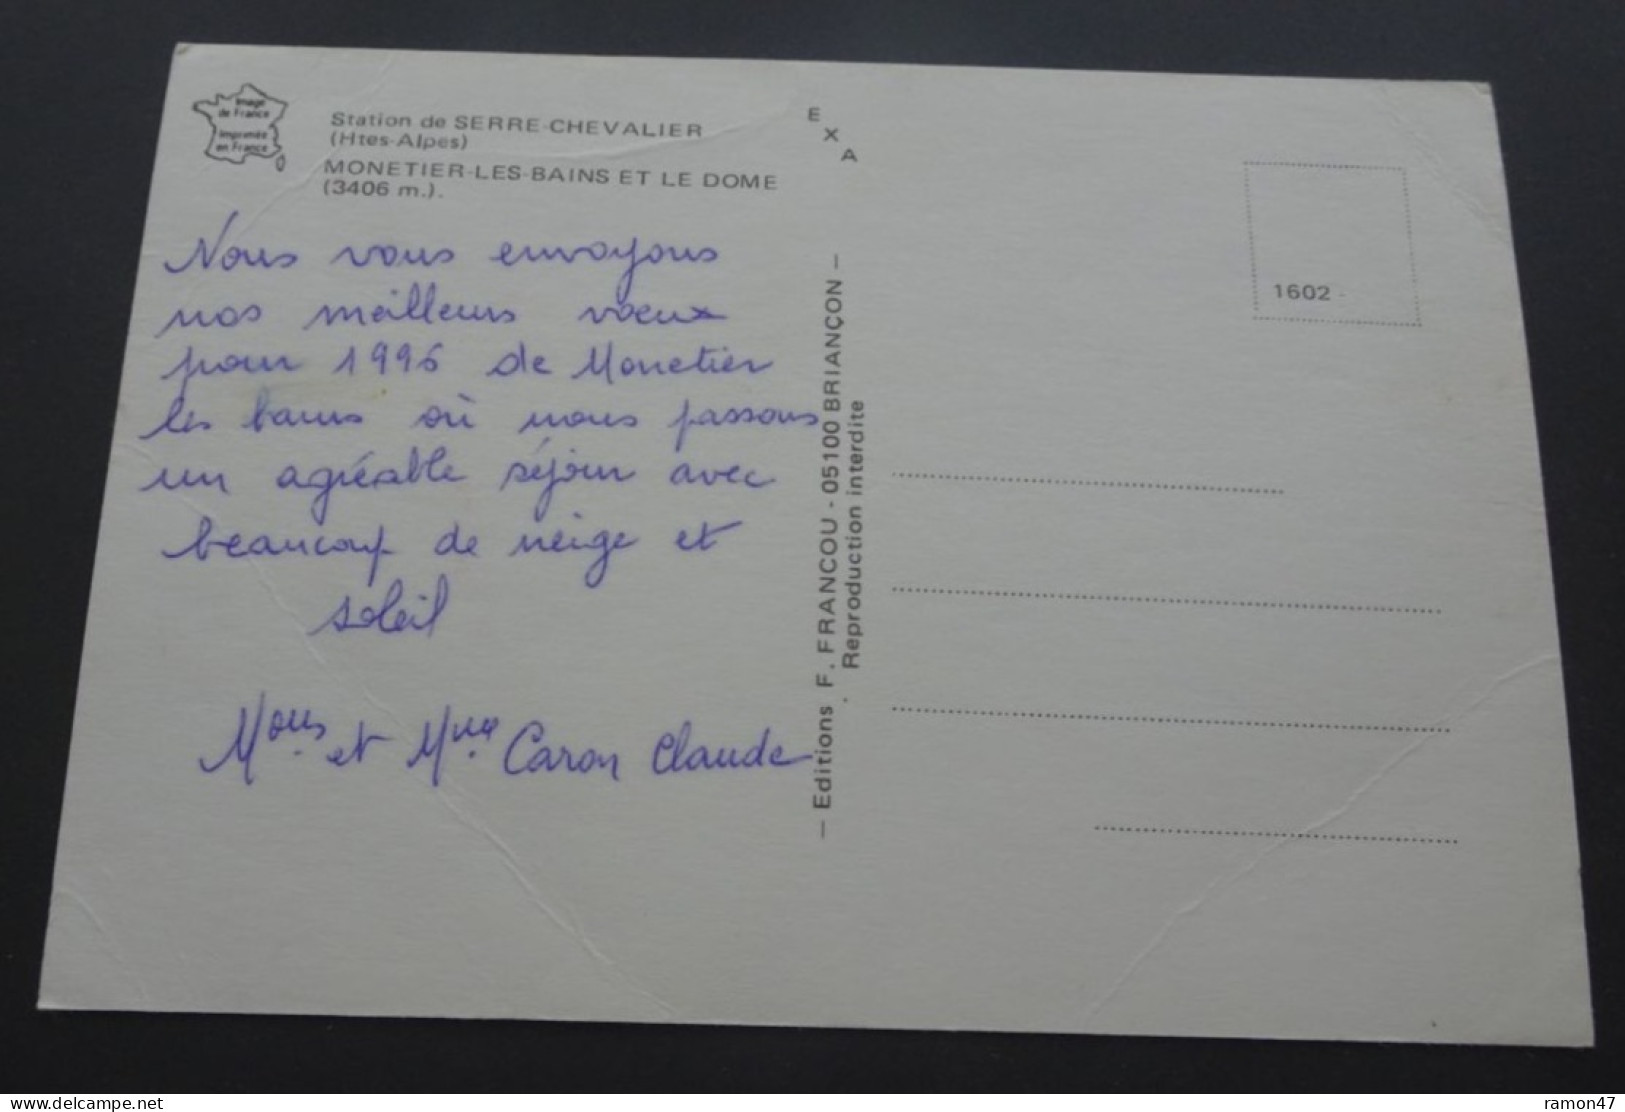 Image
de France
Imprimée
en France
Station de SERRE-CHEVALIER
(Htes-Alpes)
MONETIER-LES-BAINS ET LE DOME
(3406 m.).
Nous vous envoyons
nos meilleurs vœux
pour 1996 de Monetier
les bains où nous passons
un agréable séjour avec
beaucoup de neige et
soleil
Mous et Mme Caron Claude
E
X
A
— Editions F. FRANCOU - 05100 BRIANÇON —
Reproduction interdite
1602 -
delcampe.net
ramon47